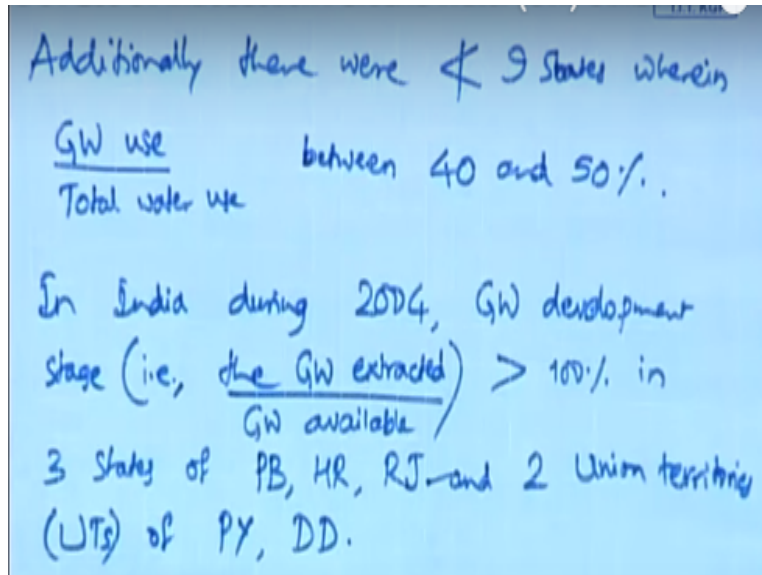 Additionally there were ≮ 9 States wherein
GW use
Total water use
between 40 and 50%.
In India during 2004, GW development
stage (i.e., the GW extracted
GW available) > 100% in
3 States of PB, HR, RJ and 2 Union territories
(UTs) of PY, DD.